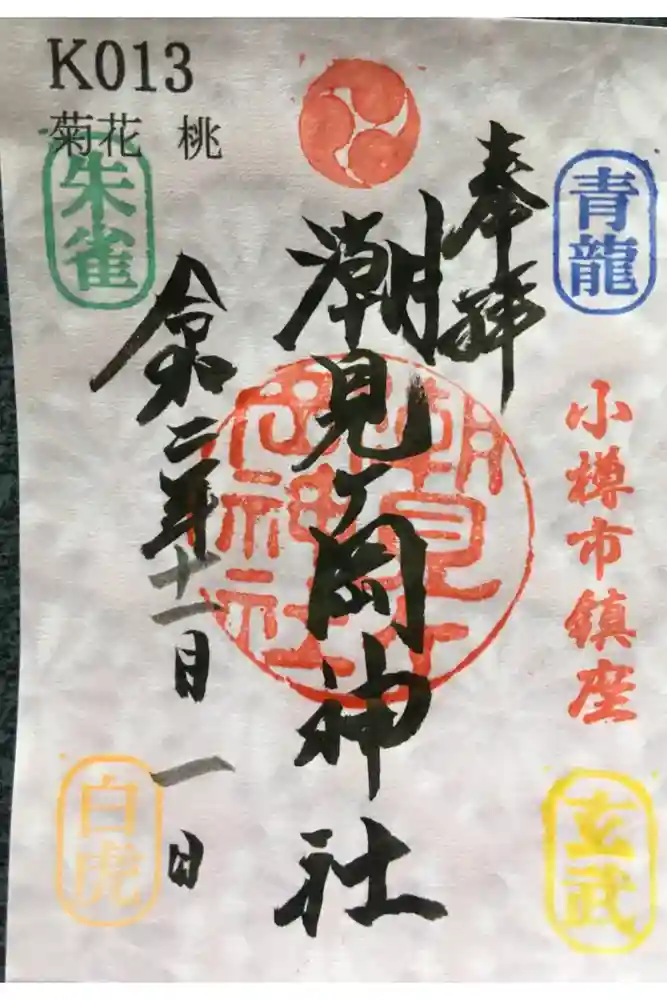 K013
菊花 桃
奉拝
潮見ヶ岡神社
令和二年十一月一日
青龍
朱雀
小樽市鎮座
潮見ヶ
岡神社
玄武
白虎